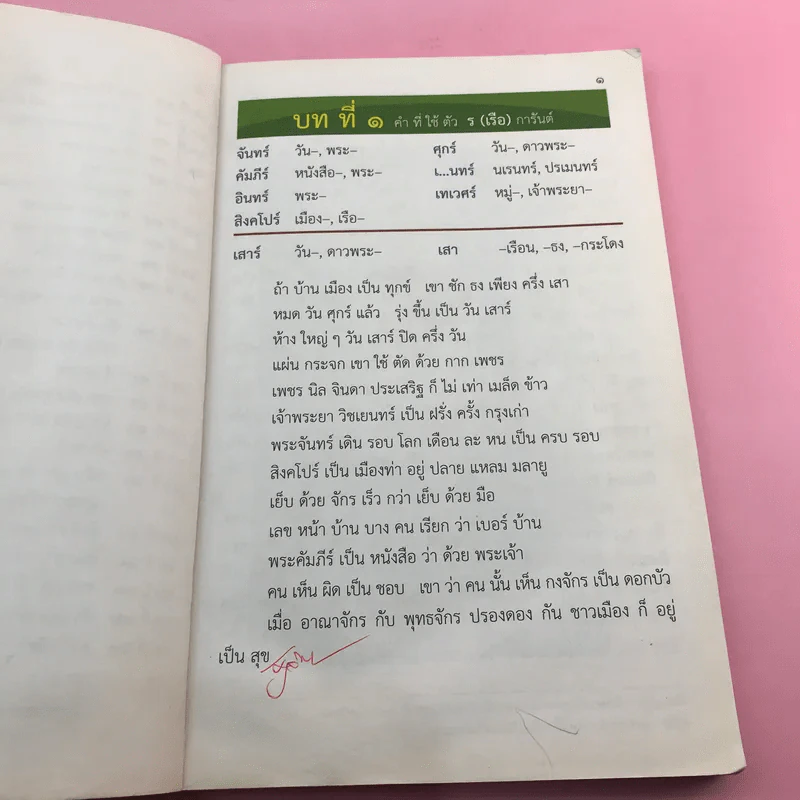 ๑
บท ที่ ๑ คำ ที่ ใช้ ตัว ร (เรือ) การันต์
จันทร์ วัน–, พระ– ศุกร์ วัน–, ดาวพระ–
คัมภีร์ หนังสือ–, พระ– เ...นทร์ นเรนทร์, ปรเมนทร์
อินทร์ พระ– เทเวศร์ หมู่–, เจ้าพระยา–
สิงคโปร์ เมือง–, เรือ–
เสาร์ วัน–, ดาวพระ– เสา –เรือน, –ธง, –กระโดง
ถ้า บ้าน เมือง เป็น ทุกข์ เขา ชัก ธง เพียง ครึ่ง เสา
หมด วัน ศุกร์ แล้ว รุ่ง ขึ้น เป็น วัน เสาร์
ห้าง ใหญ่ ๆ วัน เสาร์ ปิด ครึ่ง วัน
แผ่น กระจก เขา ใช้ ตัด ด้วย กาก เพชร
เพชร นิล จินดา ประเสริฐ ก็ ไม่ เท่า เมล็ด ข้าว
เจ้าพระยา วิชเยนทร์ เป็น ฝรั่ง ครั้ง กรุงเก่า
พระจันทร์ เดิน รอบ โลก เดือน ละ หน เป็น ครบ รอบ
สิงคโปร์ เป็น เมืองท่า อยู่ ปลาย แหลม มลายู
เย็บ ด้วย จักร เร็ว กว่า เย็บ ด้วย มือ
เลข หน้า บ้าน บาง คน เรียก ว่า เบอร์ บ้าน
พระคัมภีร์ เป็น หนังสือ ว่า ด้วย พระเจ้า
คน เห็น ผิด เป็น ชอบ เขา ว่า คน นั้น เห็น กงจักร เป็น ดอกบัว
เมื่อ อาณาจักร กับ พุทธจักร ปรองดอง กัน ชาวเมือง ก็ อยู่
เป็น สุข